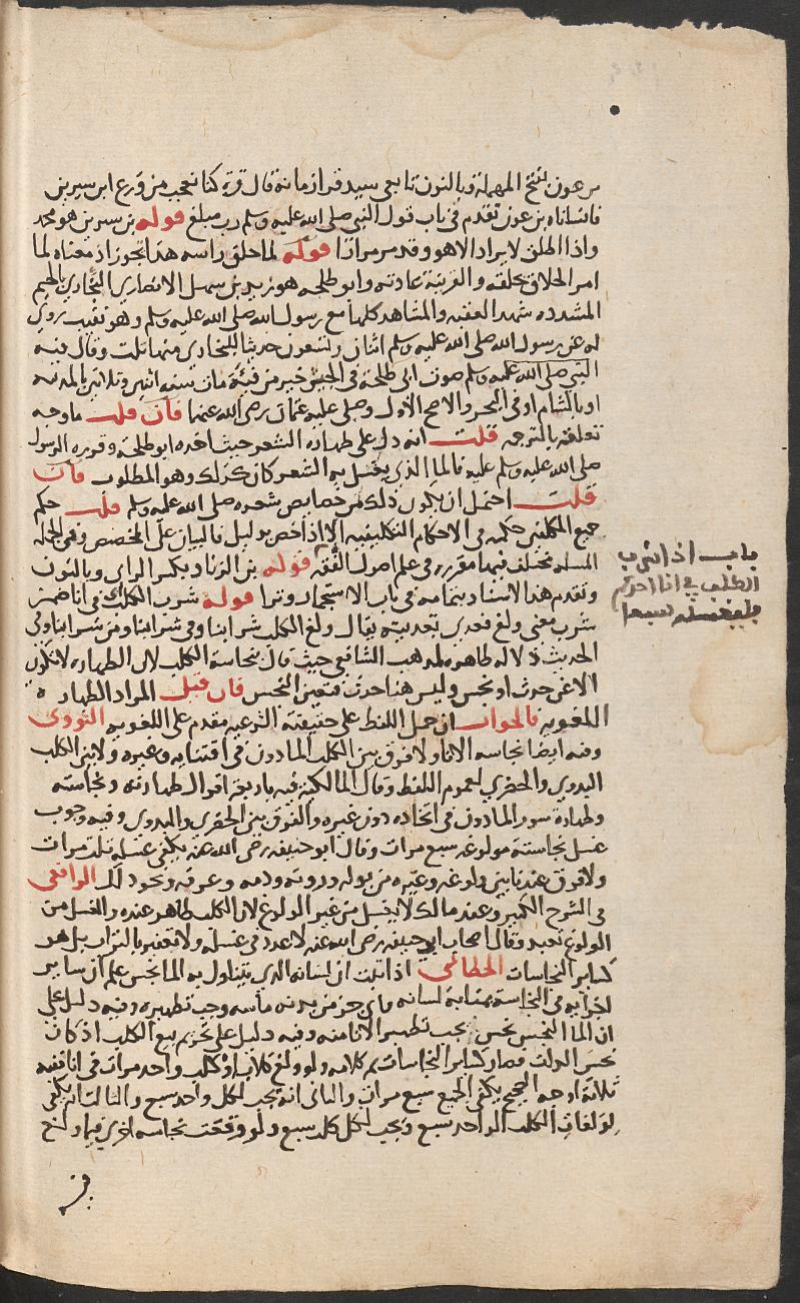 بن عون بفتح المهملة وبالنون تابعي سيد قرا زمانه قال قرة كنا نعجب من ورع ابن سيرين
فانساناه بن عون تقدم في باب قول النبي صلى الله عليه وسلم رب مبلغ قوله بن سيرين هو محمد
واذا اطلق لا يراد الا هو وقد مر مرارا قوله لما حلق راسه هذا تجوز اذ معناه لما
امر الحلاق بحلقه والقرينة عادته وابو طلحه هو زيد بن سهل الانصاري النجاري بالجيم
المشدده شهد العقبه والمشاهد كلها مع رسول الله صلى الله عليه وسلم وهو نقيب روي
له عن رسول الله صلى الله عليه وسلم اثنان وتسعون حديثا للبخاري منها ثلث وقال فيه
النبي صلى الله عليه وسلم صوت ابي طلحة في الجيش خير من فيئة مات سنه اثنين وثلاثين بالمدينه
او بالشام او في البحر والاصح الاول وصلى عليه عثمان رضي الله عنهما فان قلت ما وجه
تعلقه بالترجمه قلت انه دل على طهارة الشعر حيث اخذه ابو طلحه وقرره الرسول
صلى الله عليه وسلم عليه فالما الذي يغسل به الشعر كان كذلك وهو المطلوب فان
قلت احتمل ان يكون ذلك من خصايص شعره صلى الله عليه وسلم قلت حكم
جميع المكلفين حكمه في الاحكام التكليفيه الا اذا خص بدليل فالبيان على المخصص وفي الجملة
المسله مختلف فيها مقرره في علم اصول الفقه قوله بن الزناد بكسر الزاي وبالنون
وتقدم هذا الاسناد بتمامه في باب الاستجمار وترا قوله شرب الكلب في انا ضمن
شرب معنى ولغ فعدي تعديته يقال ولغ الكلب شرابنا وفي شرابنا ومن شرابنا وفي
الحديث دلاله ظاهره لمذهب الشافعي حيث قال بنجاسة الكلب لان الطهاره لا تكون
الا عن حدث او نجس وليس هنا حدث فتعين النجس فان قيل المراد الطهارة
اللغويه فالجواب ان حمل اللفظ على حقيقته الشرعيه مقدم على اللغويه النووي
وفيه ايضا نجاسه الانا ولا فرق بين الكلب الماذون في اقتنايه وغيره ولا بين الكلب
البدوي والحضري لعموم اللفظ وقال المالكيه فيه باربعة اقوال طهارته ونجاسته
وطهارة سور الماذون في اتخاذه دون غيره والفرق بين الحضري والبدوي وفيه وجوب
غسل نجاسته من ولوغه سبع مرات وقال ابو حنيفه رضي الله عنه يكفي غسله ثلث مرات
ولا فرق عندنا بين ولوغه وغيره من بوله وروثه ودمه وعرقه ونحو ذلك الرافعي
في الشرح الكبير وعند مالك لا يغسل من غير الولوغ لان الكلب طاهر عنده والغسل من
الولوغ تعبد وقال اصحاب ابي حنيفه رضي الله عنه لا عدد في غسله ولا تعفير بالتراب بل هو
كساير النجاسات الخطابي اذا ثبت ان لسانه الذي يتناول به الما نجس علم ان ساير
اجزايه في النجاسة بمثابة لسانه فاي جزء من بدنه ماسه وجب تطهيره وفيه دليل على
ان الما النجس نجس يجب تطهير الانا منه وفيه دليل على تحريم بيع الكلب اذ كان
نجس الذات فصار كساير النجاسات تم كلامه ولو ولغ كلاب او كلب واحد مرات في انا ففيه
ثلاثة اوجه الصحيح يكفي للجميع سبع مرات والثاني انه يجب لكل واحد سبع والثالث انه يكفي
لولغات الكلب الواحد سبع ويجب لكل كلب سبع ولو وقعت نجاسه اخرى فيما ولغ
فيه
باب اذا شرب
الكلب في انا احدكم
فليغسله سبعا